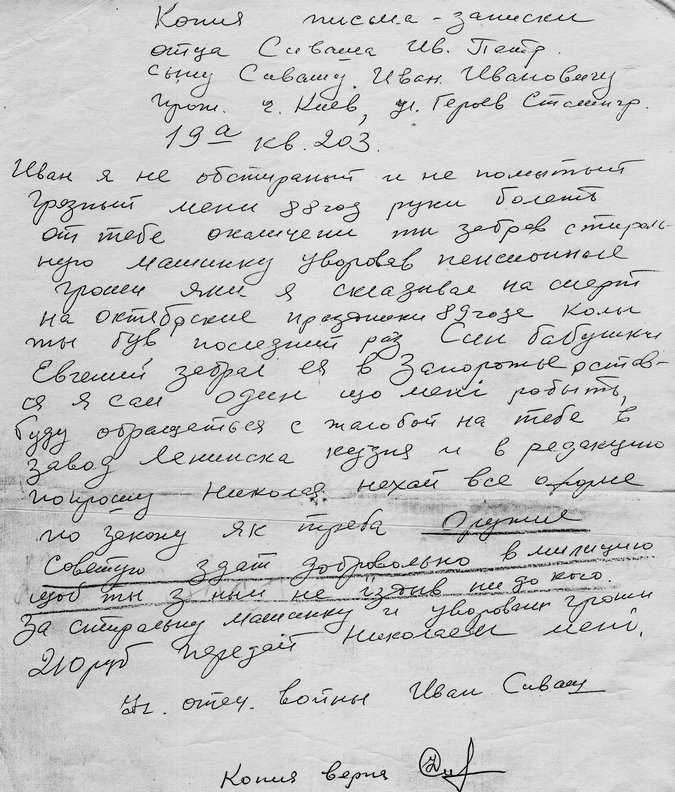 Копия письма-записки
отца Сиваша Ив. Петр.
сыну Сивашу Иван. Ивановичу
прож. г. Киев, ул. Героев Сталингр.
19а кв. 203.
Иван я не обстираный и не помытый
грязный мени 88 год руки болеть
от тебе окаличени ти забрав стираль-
ную машинку уворовав пенсионные
гроши яки я скла́дывае на смерт
на октябрские праздники 89 годе колы
ты був последний раз, Син бабушки
Евгений забрал ея в Запорожье остав-
ся я сам один що мені робыть,
буду обращаться с жалобой на тебе в
завод Ленинска кузня и в редакцию
попрошу Николая нехай все оформе
по закону як треба Оружие
Советую здат добровольно в милицию
щоб ты з ним не їздыв ни до кого.
За стиральну машинку и уворовани гроши
210 руб передай Николаем мені.
Уч. отеч. войны Иван Сиваш
Копия верна